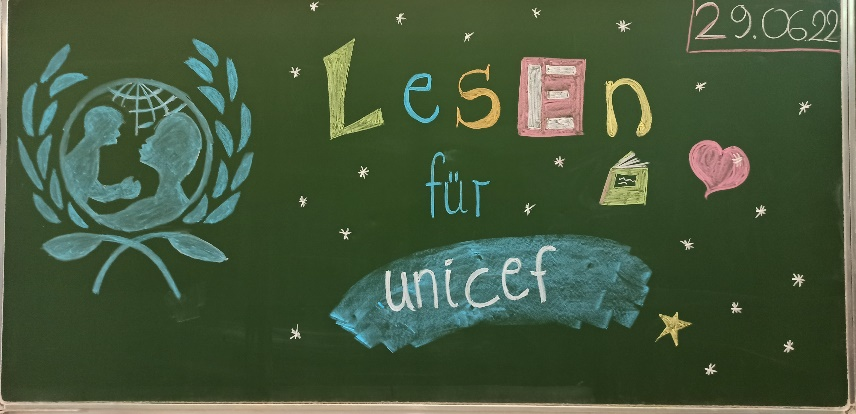 29.06.22
LesEn
für
unicef